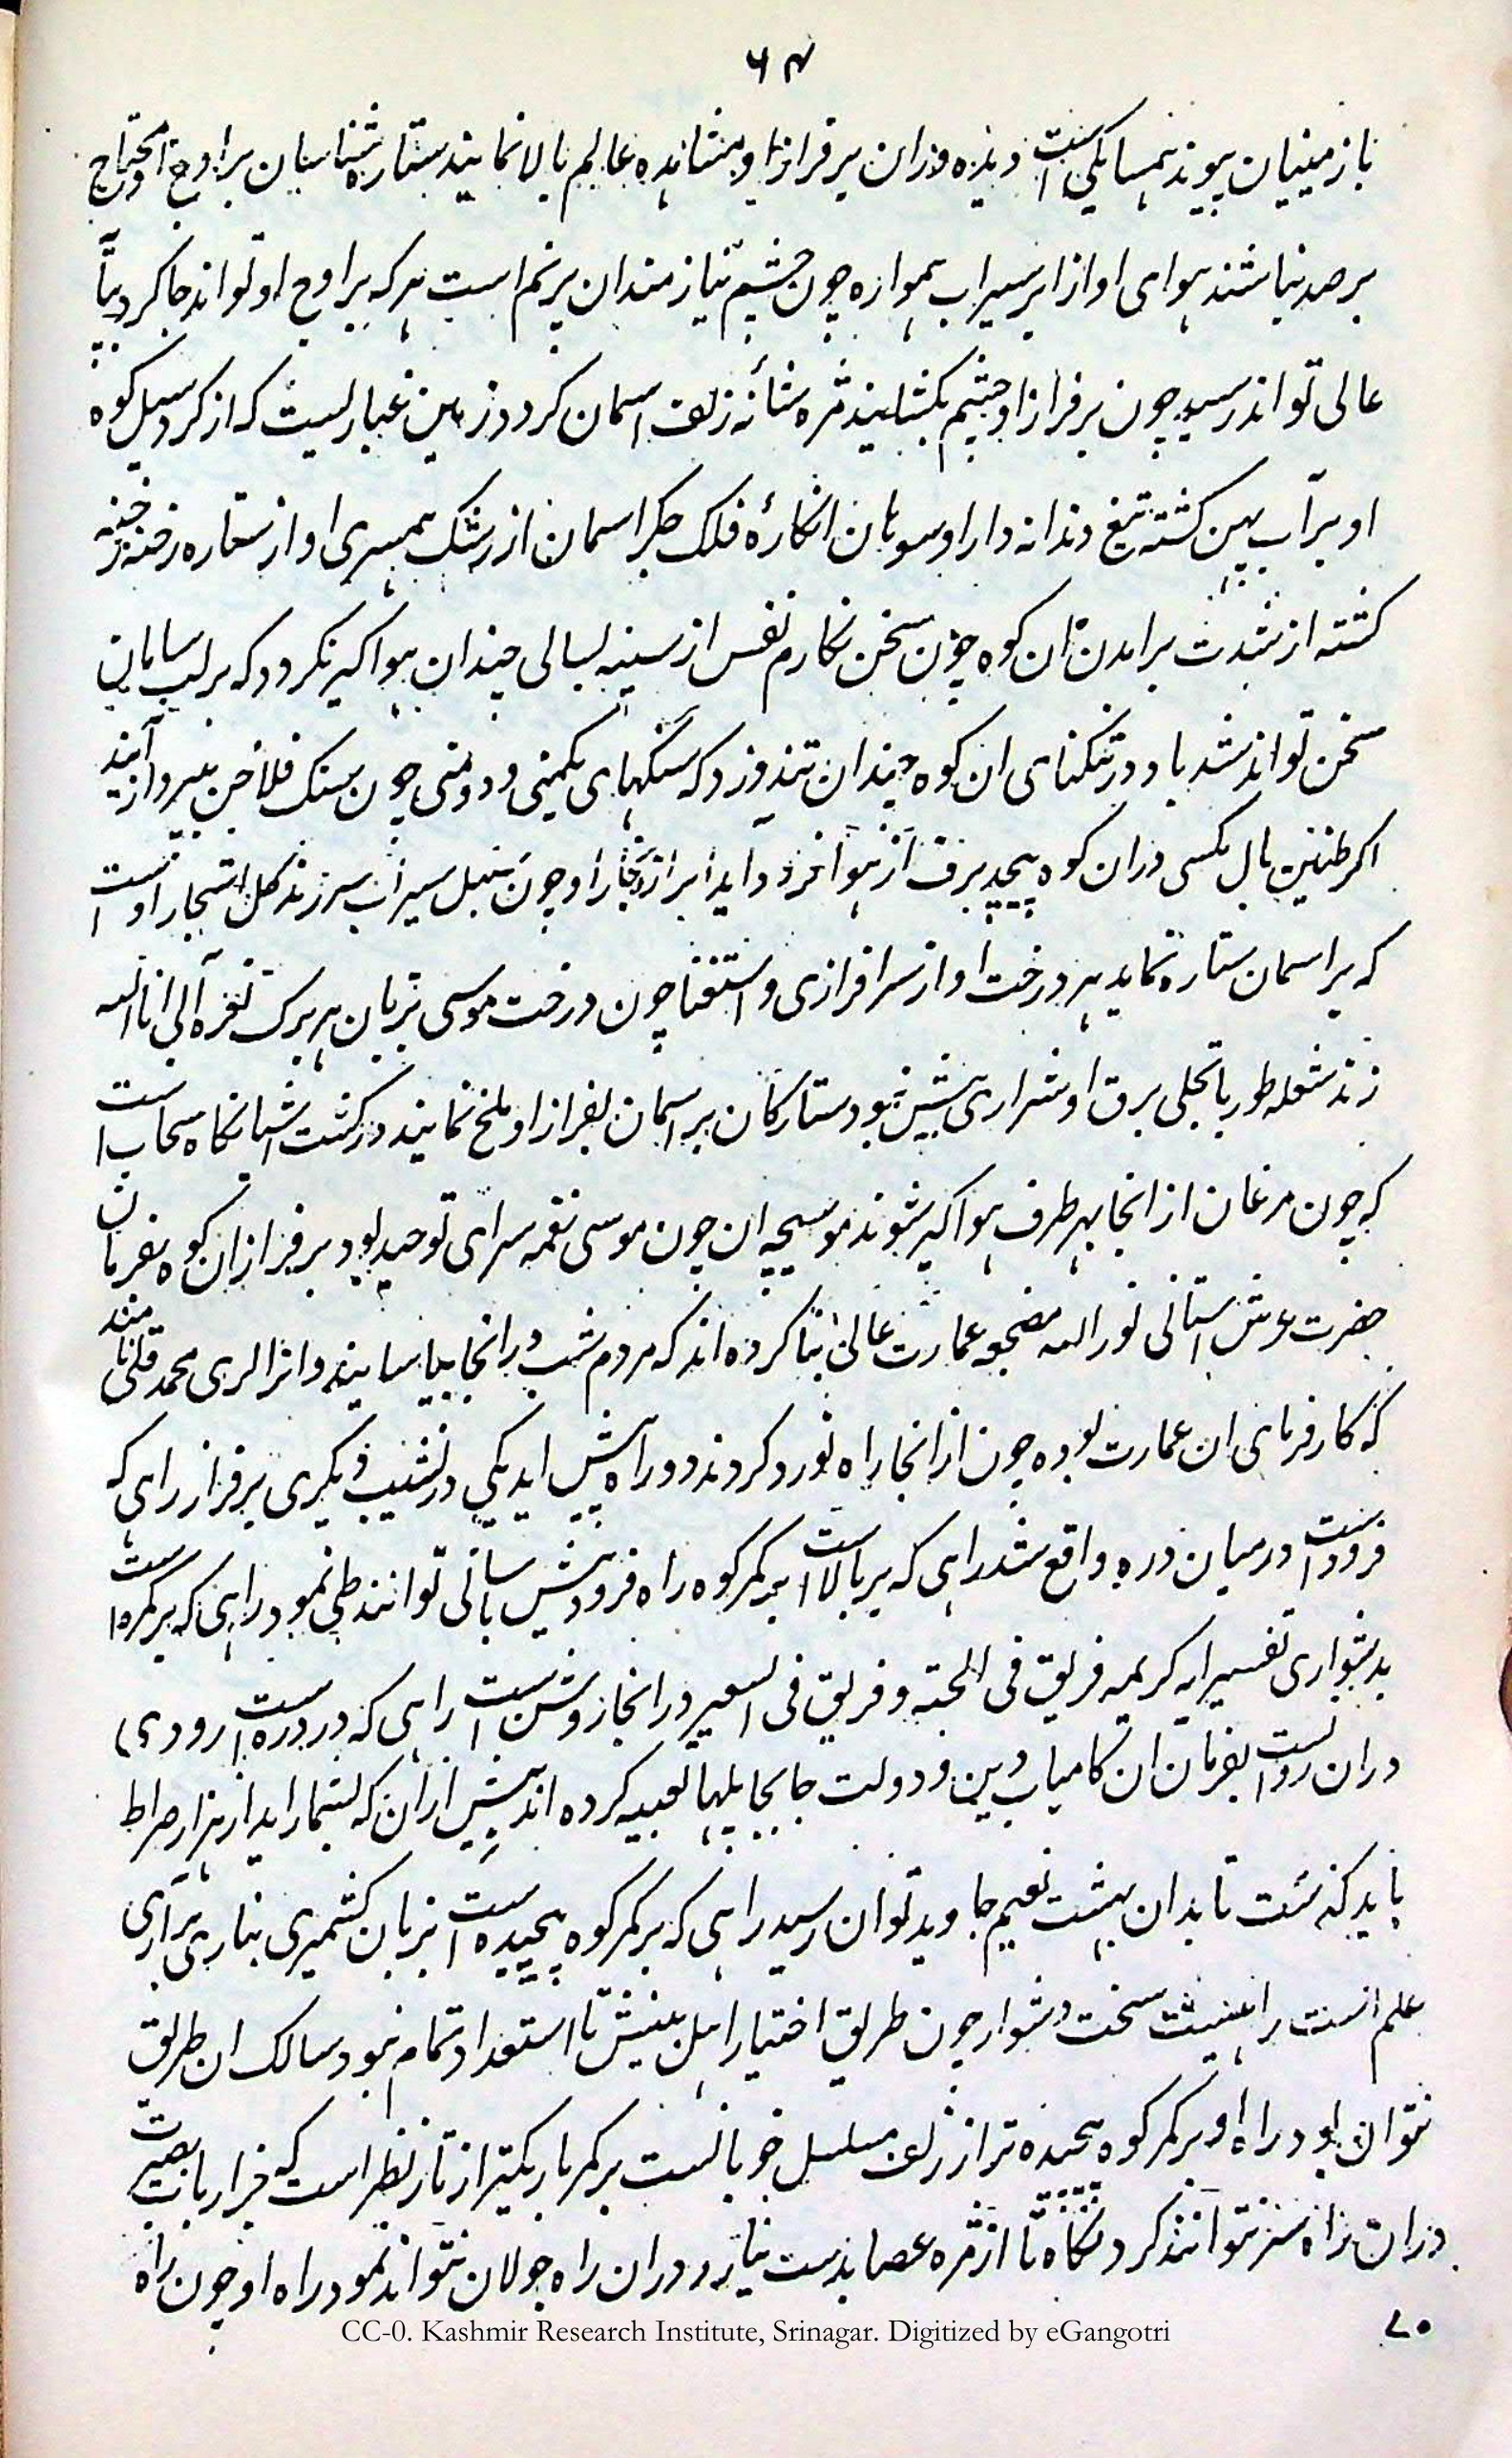 ۶۴
با زمینیان پیوند همسایگی است دیده وران بر فراز او مشاهده عالم بالا نمایند ستاره شناسان بر اوج او محتاج
برصد نباشند هوای او از ابر سیراب همواره چون چشم نیازمندان پرنم است هرکه بر اوج او تواند جا کرد بپایه
عالی تواند رسید چون بر فراز او چشم بکشایند مژه شانه زلف اسمان کردد زمین غباریست که از کرد سیل کوه
او بر آب پهن کشته تیغ دندانه دار او سوهان انکارهٔ فلک جکر اسمان از رشک همسری او از ستاره رخنه رخنه
کشته از شدت برامدن ان کوه چون سخن نکارم نفس از سینه لبالی چندان هواکیر نکردد که بر لب سامان
سخن تواند شد باد در تنکنای ان کوه چندان تند وزد که سنکهای یکمنی و دو منی چون سنک فلاخن بپرواز آیند
اکر طنین بال مکسی دران کوه پیچد برف از هوا فرود آید ابر از بخار او چون سنبل سیراب سر زند کل اشجار اوست
که بر اسمان ستاره نماید هر درخت او از سرافرازی و استغنا چون درخت موسی بزبان هر برک نعره انی انا الله
زند شعله طور با تجلی برق او شراری بیش نبود ستارکان بر اسمان بفراز او ملخ نمایند در کشت اشیانکاه سحاب است
که چون مرغان از انجا بهر طرف هواکیر شوند موسیچه ان چون موسی نغمه سرای توحید بود بر فراز ان کوه بفرمان
حضرت عرش استانی نور الله مضجعه عمارت عالی بنا کرده اند که مردم شب در انجا بیاسایند و انرا لری محمد قلی نامند
که کارفرمای ان عمارت بوده چون از انجا راه نورد کردند دو راه پیش اید یکی در نشیب دیکری بر فراز راهی که
فرود است درمیان دره واقع شد راهی که بر بالا است بر کمر کوه راه فرودش باسانی توانند طی نمود راهی که بر کمره است
بدشواری تفسیر ایه کریمه فریق فی الجنته و فریق فی السعیر در انجا روشن است راهی که در دره است رودی)
دران روانست بفرمان ان کامیاب دین و دولت جابجا پلها تعبیه کرده اند پیش ازان که بشمار اید از هزار صراط
باید کذشت تا بدان بهشت نعیم جاوید توان رسید راهی که بر کمر کوه پیچیده است بزبان کشمیری بناری براری
علم است راهیست سخت دشوار چون طریق اختیار اهل بینش تا استعداد تمام نبود سالک ان طریق
نتوان بود راه او بر کمر کوه پیچیده تر از زلف مسلسل خوبانست بر کمر باریکتر از تار نظر است که جز ارباب بصیرت
دران راه سفر نتوانند کرد نکاه تا از مژه عصا بدست نیارد دران راه جولان نتواند نمود راه او چون راه
۷۰
CC-0. Kashmir Research Institute, Srinagar. Digitized by eGangotri